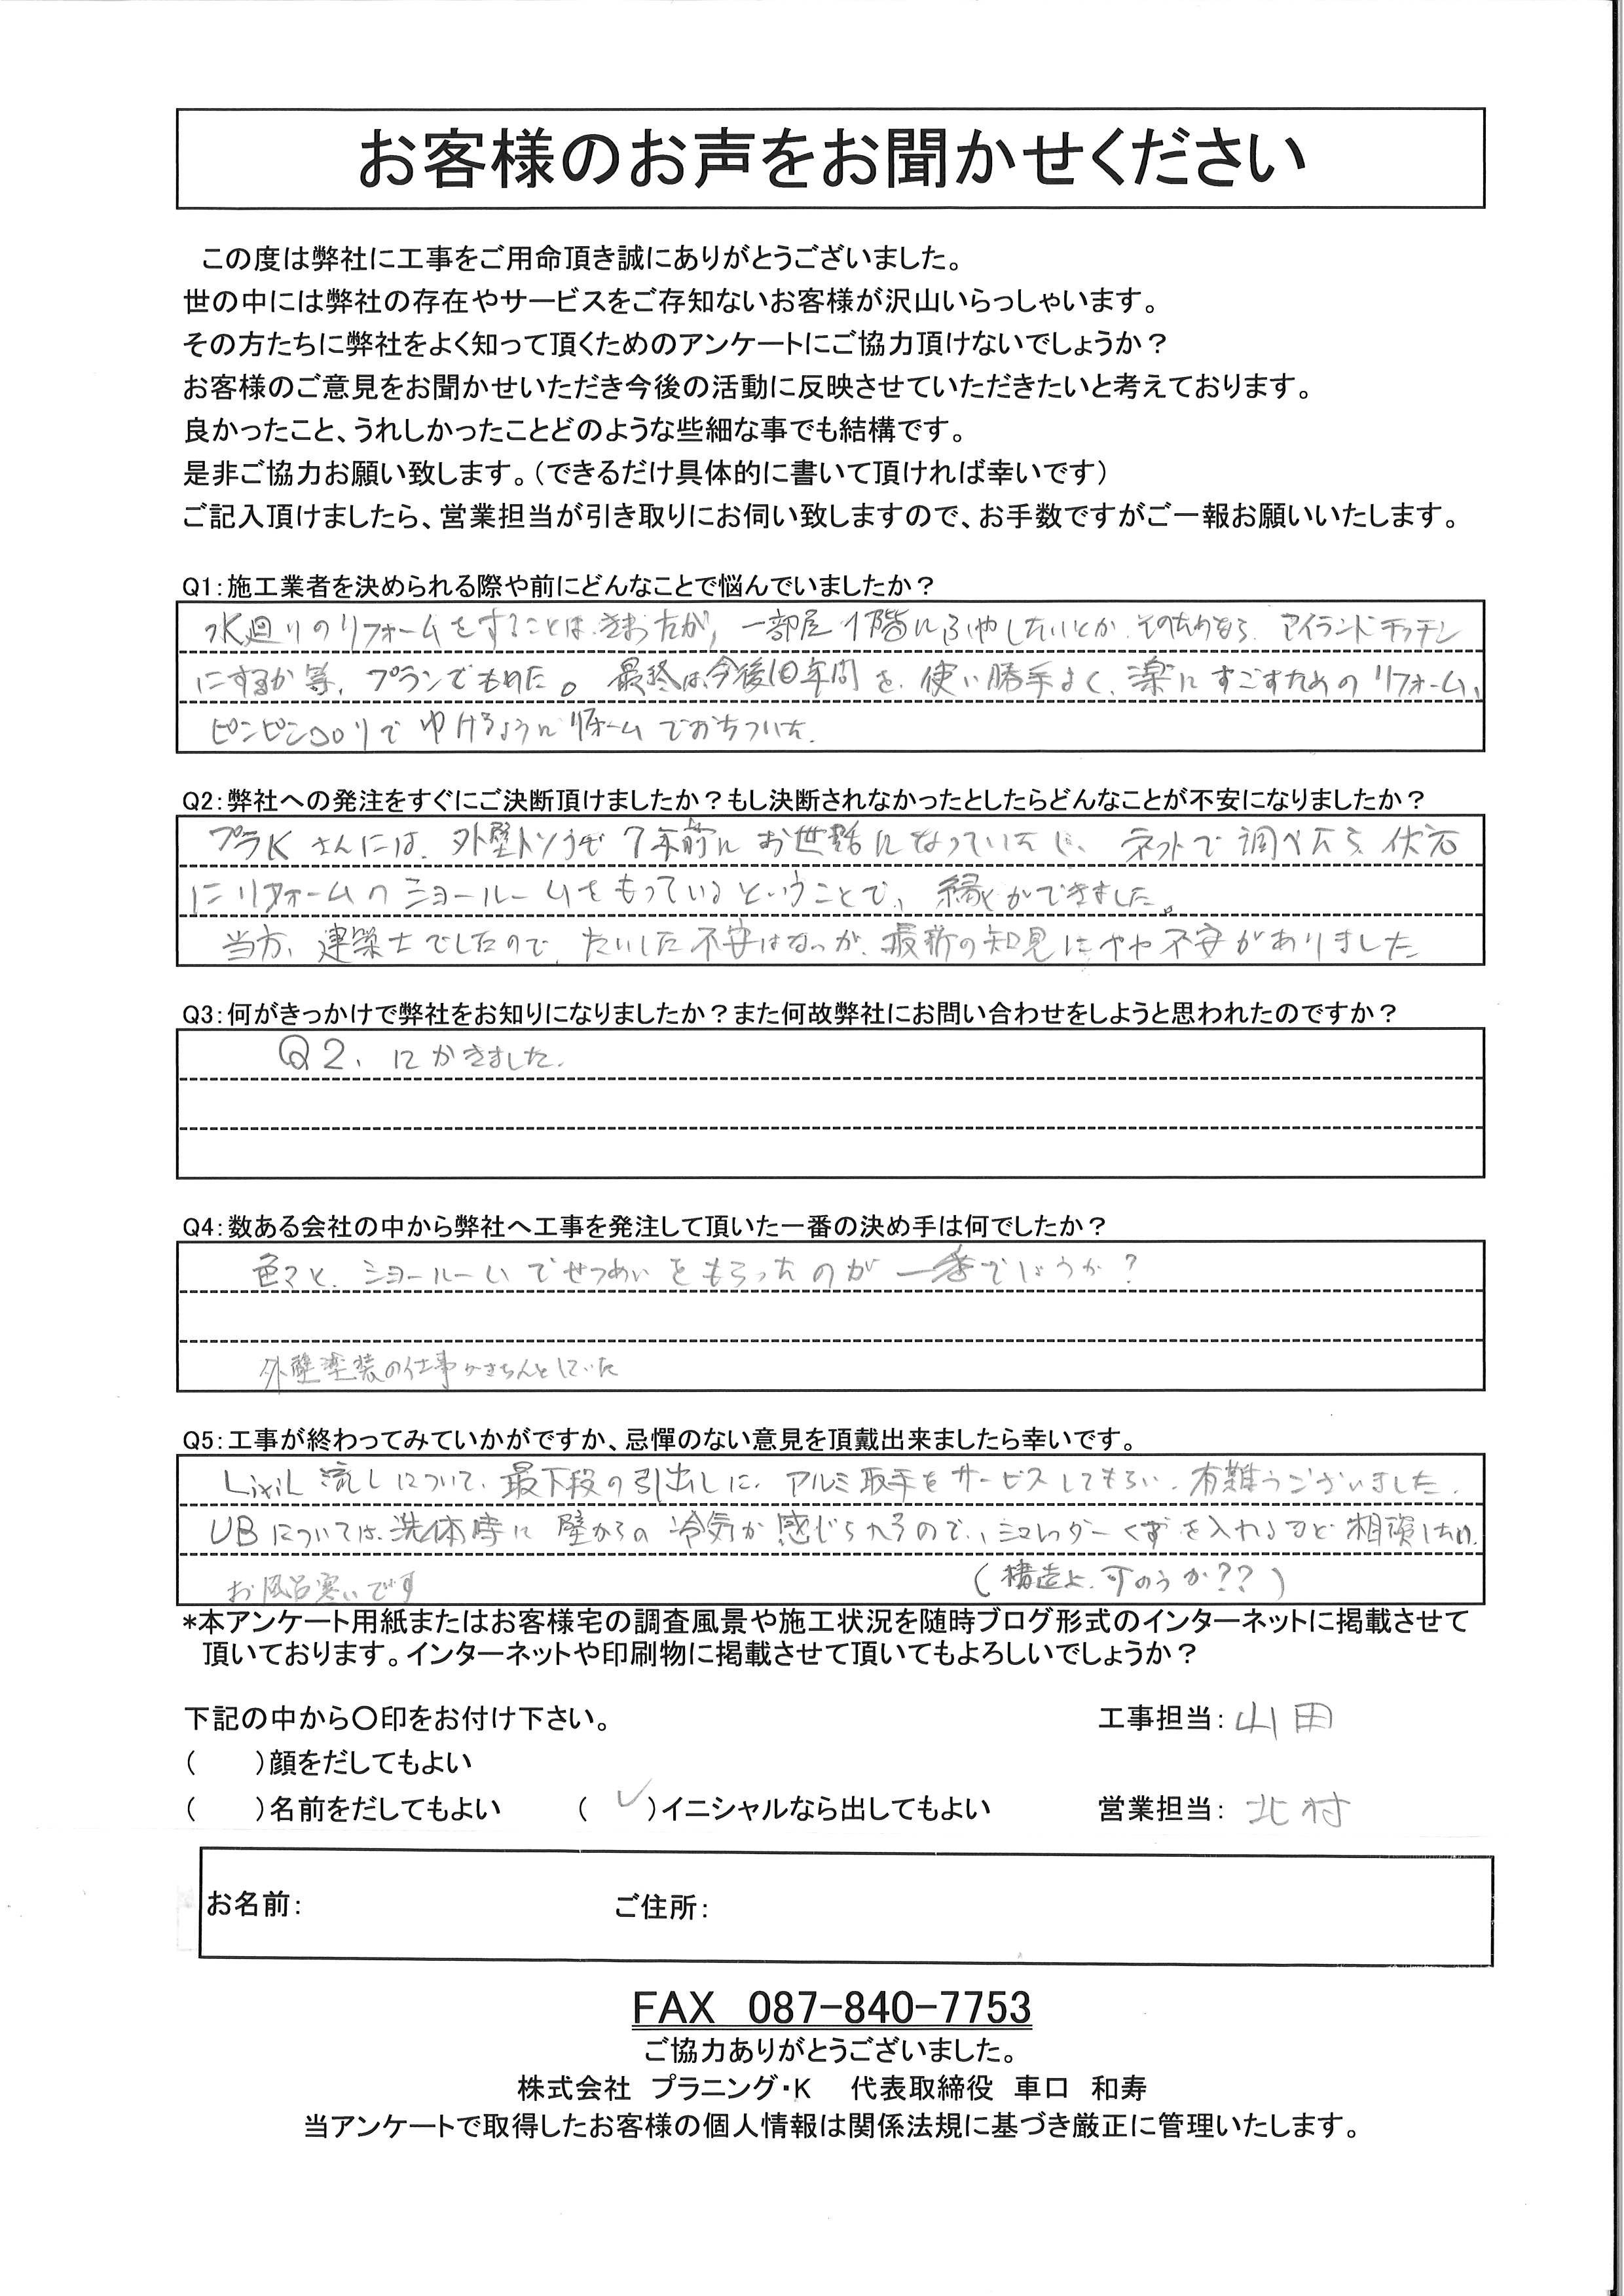 お客様のお声をお聞かせください
この度は弊社に工事をご用命頂き誠にありがとうございました。
世の中には弊社の存在やサービスをご存知ないお客様が沢山いらっしゃいます。
その方たちに弊社をよく知って頂くためのアンケートにご協力頂けないでしょうか？
お客様のご意見をお聞かせいただき今後の活動に反映させていただきたいと考えております。
良かったこと、うれしかったことどのような些細な事でも結構です。
是非ご協力お願い致します。（できるだけ具体的に書いて頂ければ幸いです）
ご記入頂けましたら、営業担当が引き取りにお伺い致しますので、お手数ですがご一報お願いいたします。
Q1：施工業者を決められる際や前にどんなことで悩んでいましたか？
水廻りのリフォームをすることは、きまったが、一部屋1階にふやしたいとか、アイランドキッチン
にするか等、プランでもめた。最終は、今後10年間を、使い勝手よく、楽にすごすためのリフォーム、
ピンピンコロリでゆけるようにリフォームでおちついた。
Q2：弊社への発注をすぐにご決断頂けましたか？もし決断されなかったとしたらどんなことが不安になりましたか？
プラKさんには、外壁トソウで7年前にお世話になっていたし、ネットで調べたら、伏石
にリフォームのショールームをもっているということで、縁ができました。
当方、建築士でしたので、たいした不安はないが、最新の知見にやや不安がありました
Q3：何がきっかけで弊社をお知りになりましたか？また何故弊社にお問い合わせをしようと思われたのですか？
Q2、にかきました。
Q4：数ある会社の中から弊社へ工事を発注して頂いた一番の決め手は何でしたか？
色々と、ショールームでせつめいをもらったのが一番でしょうか？
外壁塗装の仕事がきちんとしていた
Q5：工事が終わってみていかがですか、忌憚のない意見を頂戴出来ましたら幸いです。
LixiL 流しについて、最下段の引出しに、アルミ取手をサービスしてもらい、有難うございました。
UBについては、洗体時に壁からの冷気が感じられるので、シュレッダーくずを入れるなど相談したい。
（構造上、可のうか？？）
お風呂寒いです
*本アンケート用紙またはお客様宅の調査風景や施工状況を随時ブログ形式のインターネットに掲載させて
頂いております。インターネットや印刷物に掲載させて頂いてもよろしいでしょうか？
下記の中から〇印をお付け下さい。 工事担当：山田
（　　）顔をだしてもよい
（　　）名前をだしてもよい （ ✓ ）イニシャルなら出してもよい 営業担当：北村
お名前： ご住所：
FAX 087-840-7753
ご協力ありがとうございました。
株式会社 プラニング・K 代表取締役 車口 和寿
当アンケートで取得したお客様の個人情報は関係法規に基づき厳正に管理いたします。